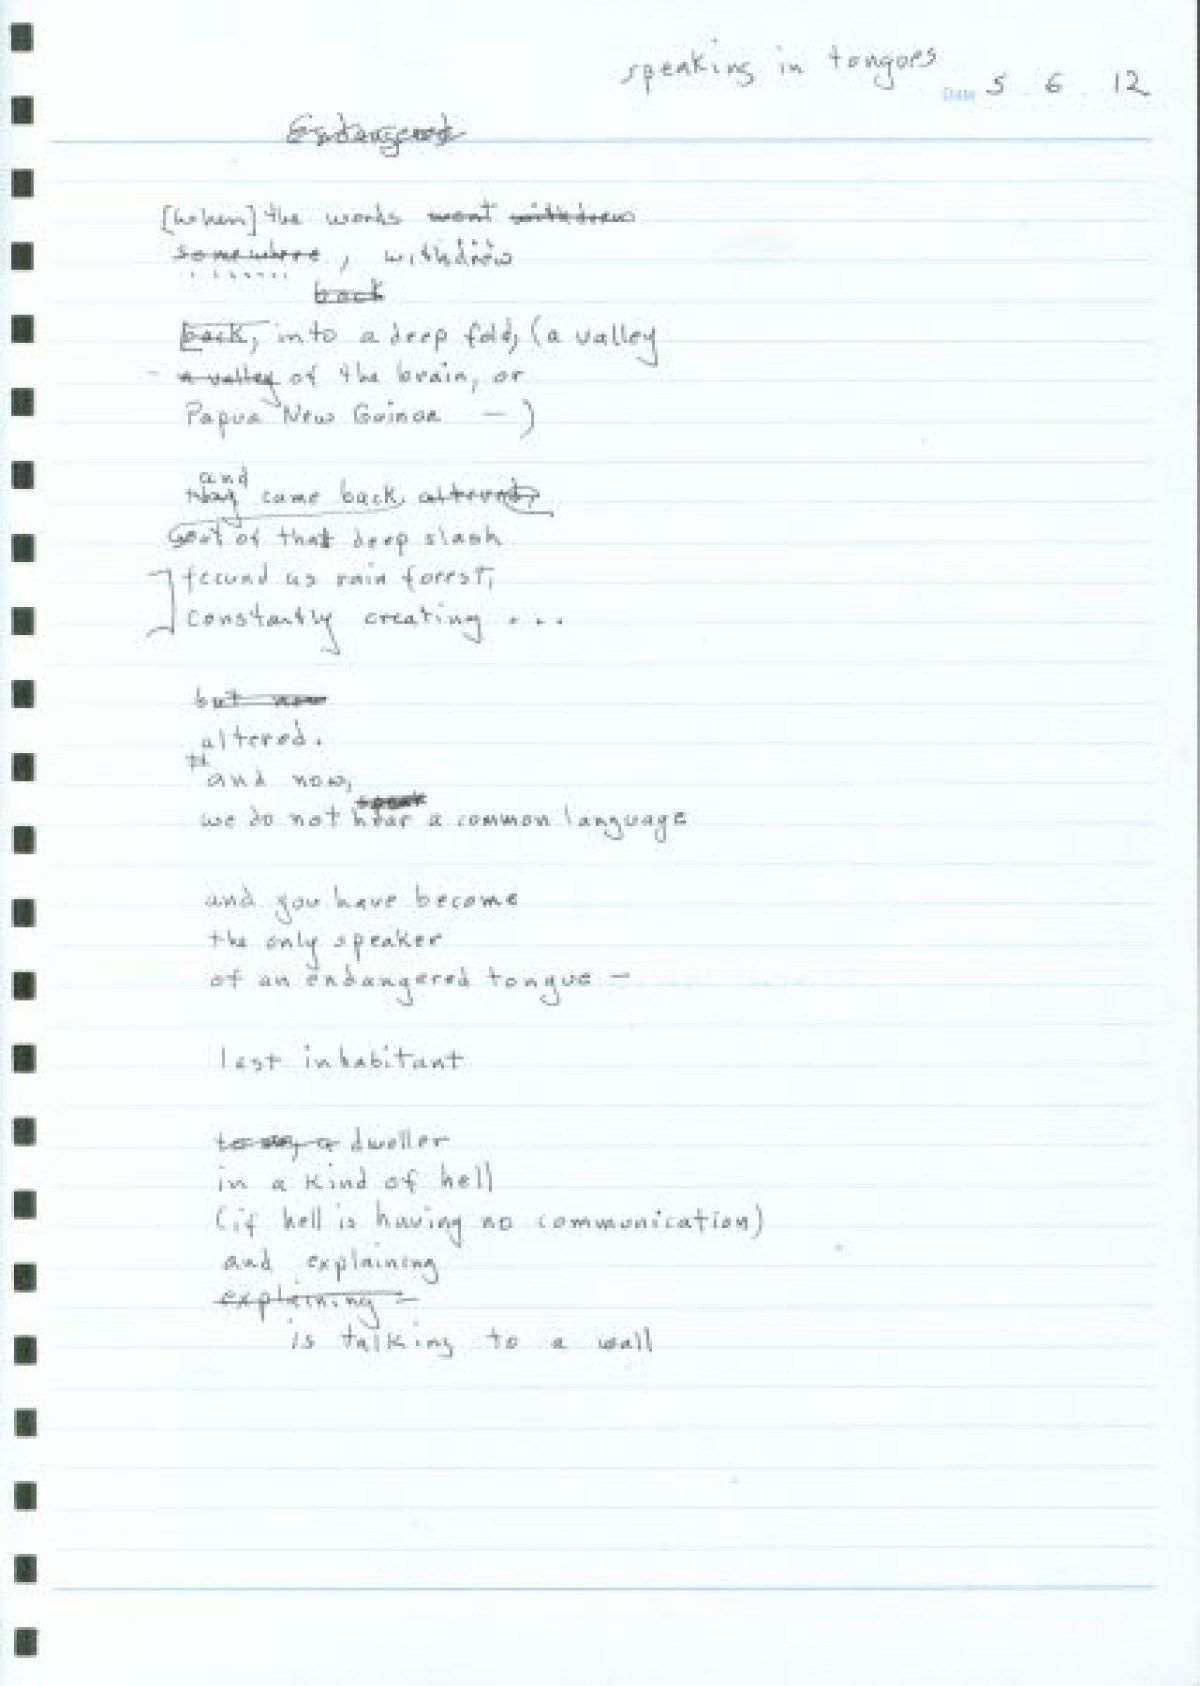 speaking in tongues
Date 5 6 12
Endangered
[when] the words went withdrew
somewhere, withdrew
back
[back, into a deep fold, (a valley
- a valley of the brain, or
Papua New Guinea — )
and
they came back altered,
out of that deep slash
fecund as rain forest,
constantly creating ...
but now
altered.
and now,
speak
we do not hear a common language
and you have become
the only speaker
of an endangered tongue —
last inhabitant
a dweller
in a kind of hell
(if hell is having no communication)
and explaining
explaining —
is talking to a wall